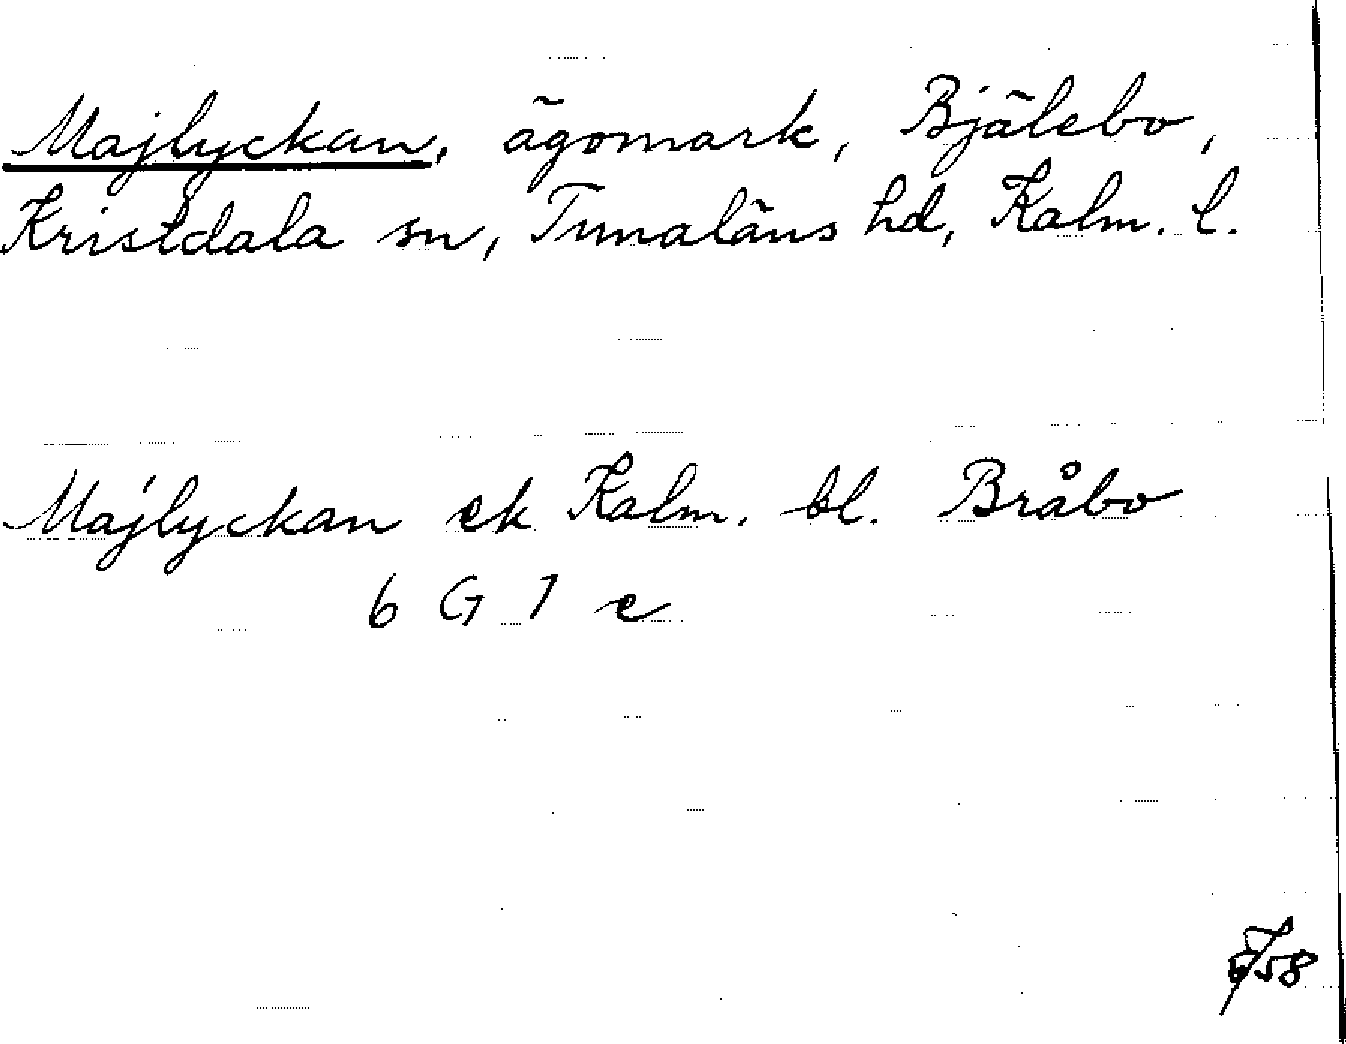 Majlyckan, ägomark, Bjälebo,
Kristdala sn, Tunaläns hd, Kalm. l.
Majlyckan ek Kalm. bl. Bråbo
6 G 7 e